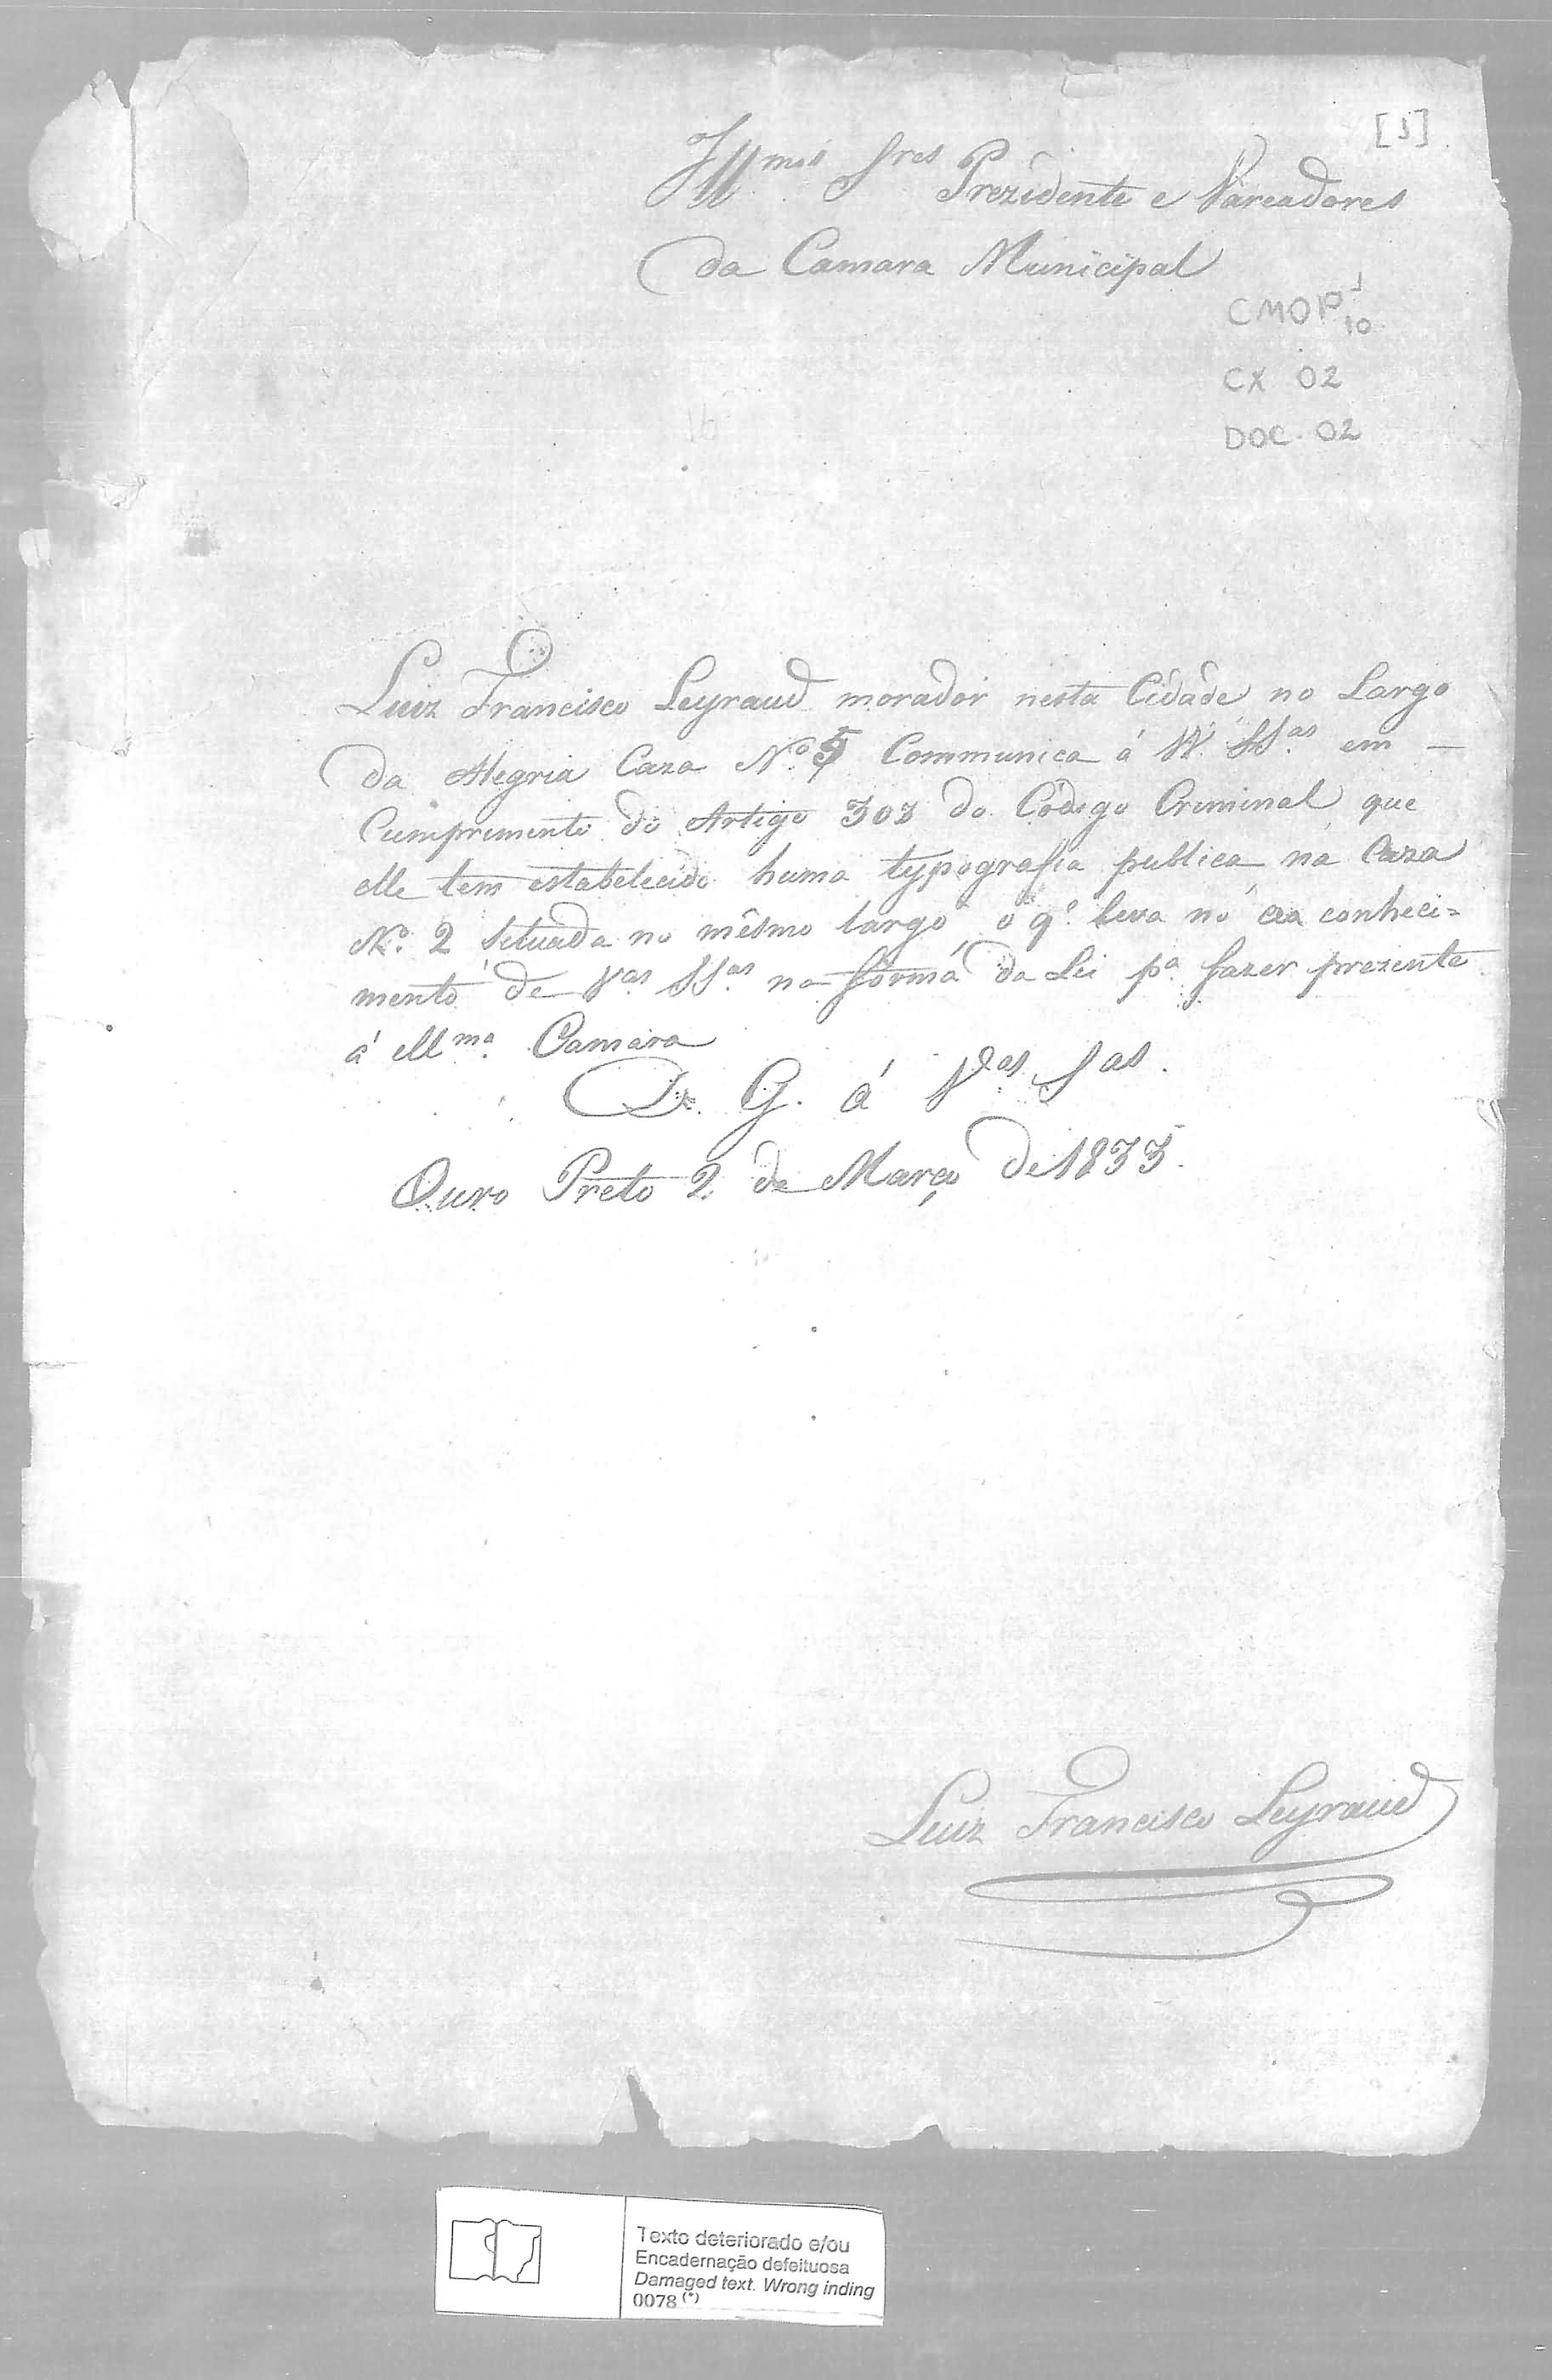 [1]
Illmos Sres Prezidente e Vareadores
da Camara Municipal
CMOP 1
10
CX 02
DOC. 02
Luiz Francisco Leyraud morador nesta Cidade no Largo
da Alegria Caza No. 5 Communica á VV. SSas. em —
Cumprimento do Artigo 303 do Codigo Criminal, que
elle tem estabelecido huma typografia publica na Caza
No. 2 Situada no mêsmo largo o qe. leva no ao conheci=
mento de Vas SSas. na fórma da Lei pa. fazer prezente
á Illma. Camara
D. G. á Vas. Sas.
Ouro Preto 2 de Março de 1833.
Luiz Francisco Leyraud
Texto deteriorado e/ou
Encadernação defeituosa
Damaged text. Wrong inding
0078 (*)